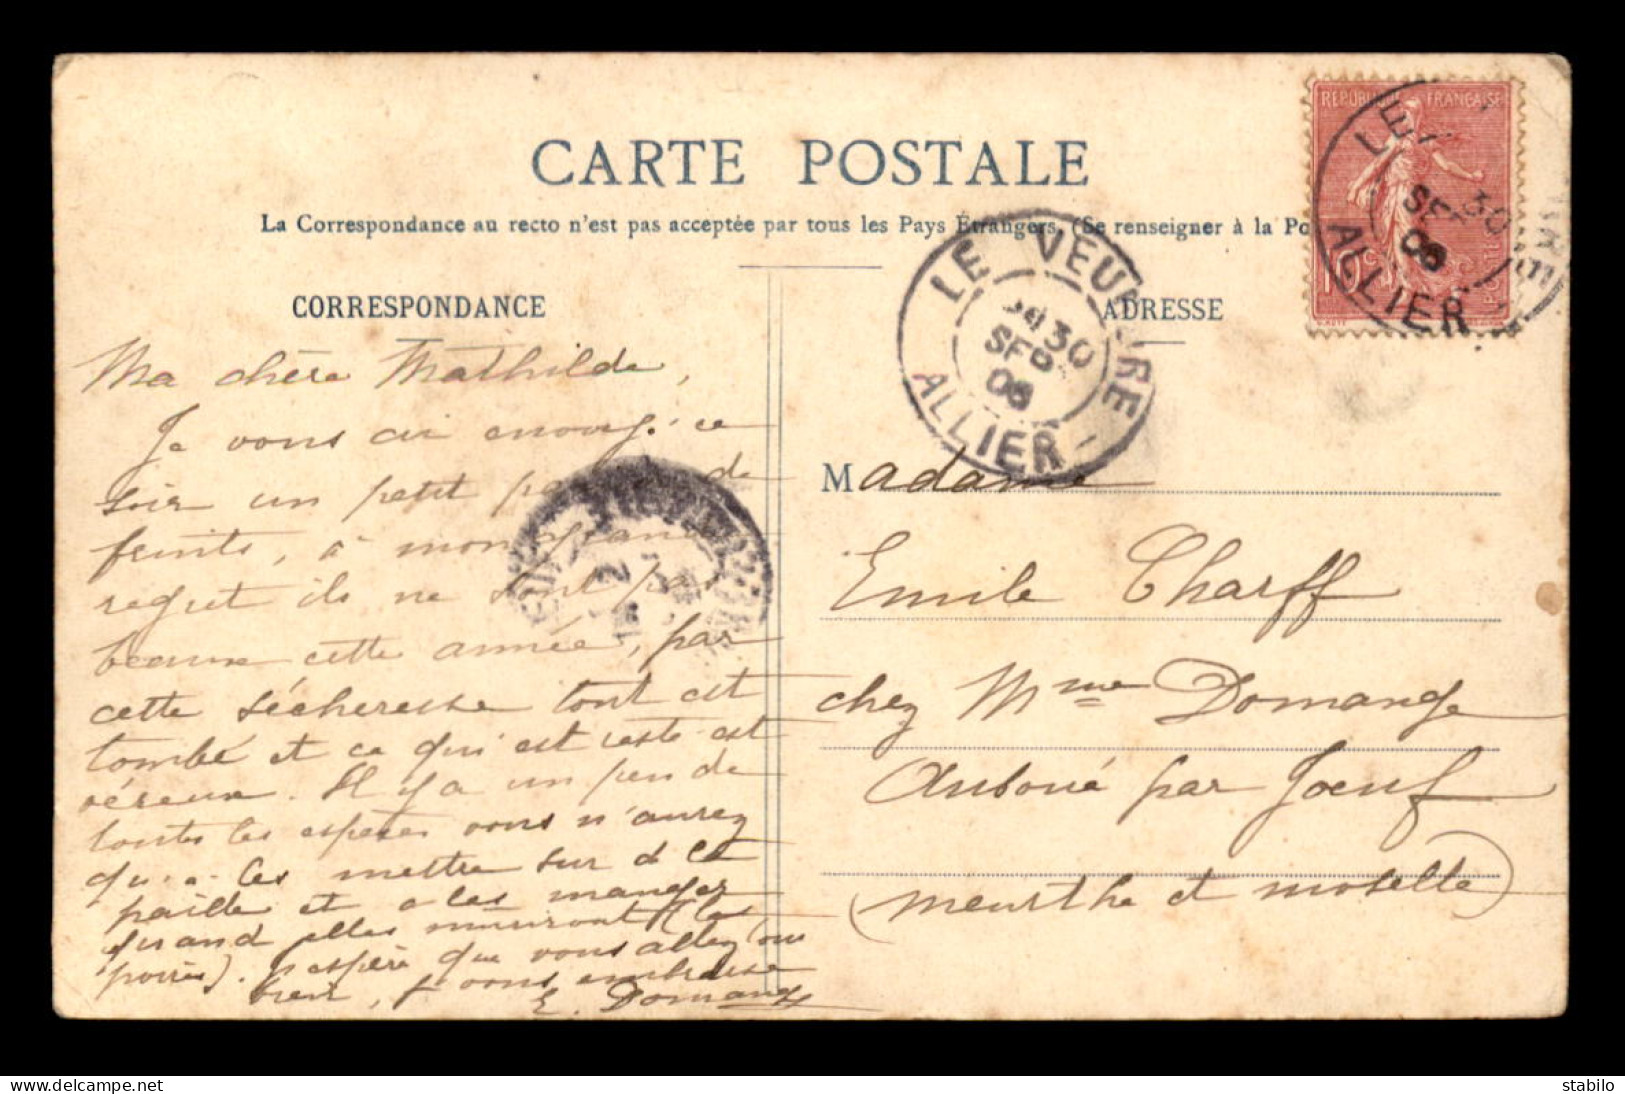 CARTE POSTALE
La Correspondance au recto n'est pas acceptée par tous les Pays Étrangers. (Se renseigner à la Po
CORRESPONDANCE
Ma chère Mathilde,
Je vous ai envoyé ce
soir un petit de
fruits, à mon grand
regret ils ne sont pas
beaux cette année, par
cette sécheresse tout est
tombé et ce qui est reste est
véreux. Il y a un peu de
toutes les espèces vous n'aurez
qu'à les mettre sur de la
paille et a les manger
quand elles muriront (les
poires). J'espère que vous allez tous
bien, je vous embrasse
E. Domange
ADRESSE
Madame
Emile Charff
chez Mme Domange
Auboué par Joeuf
(Meurthe et Moselle)
REPUBLIQUE FRANÇAISE
10 c
POSTES
LE VEURDRE
30
SEPT
06
ALLIER
LE VEURDRE
30
SEPT
06
ALLIER
stabilo